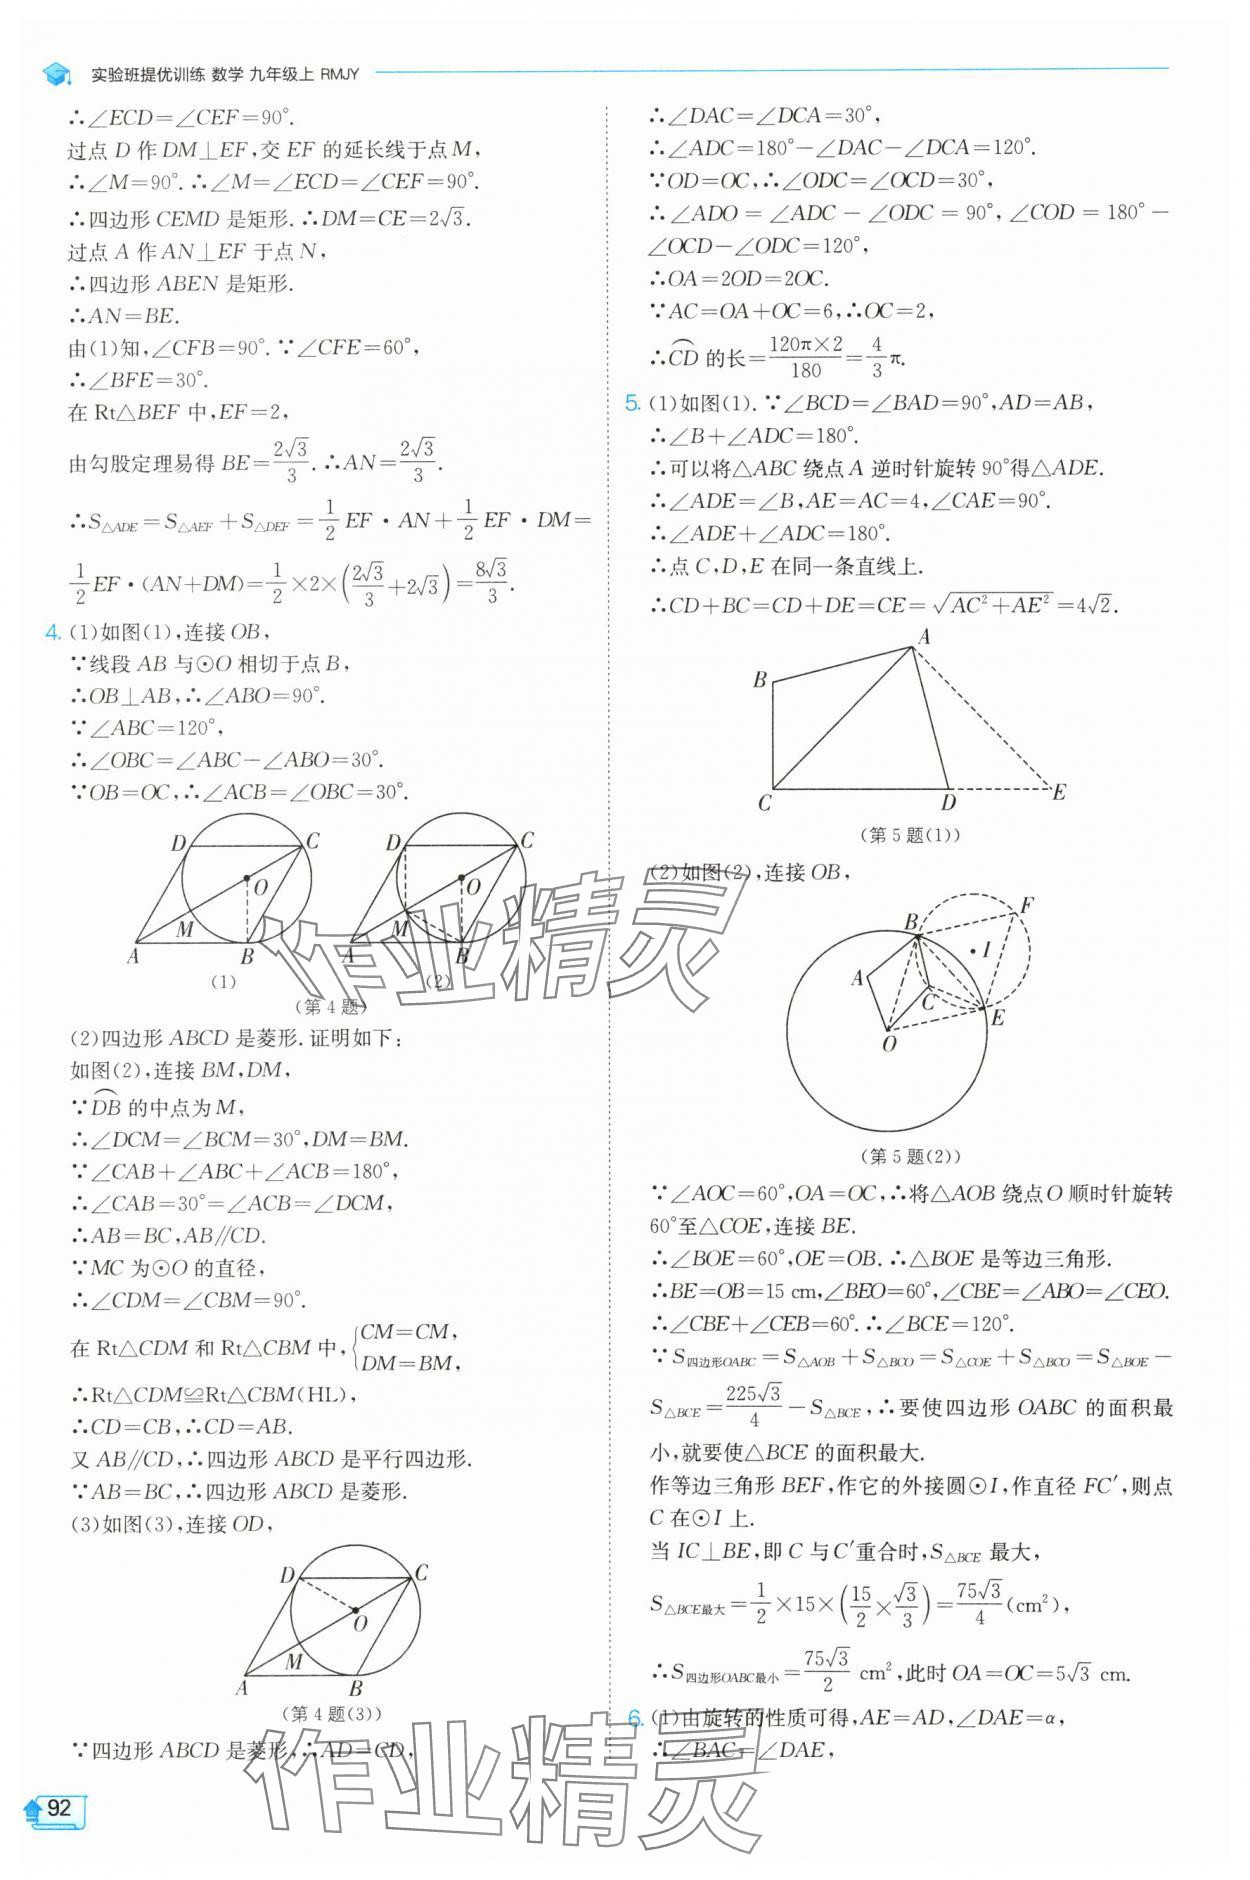 实验班提优训练 数学 九年级上 RMJY
∴∠ECD=∠CEF=90°.
过点 D 作 DM⊥EF,交 EF 的延长线于点 M,
∴∠M=90°. ∴∠M=∠ECD=∠CEF=90°.
∴四边形 CEMD 是矩形. ∴DM=CE=2√3.
过点 A 作 AN⊥EF 于点 N,
∴四边形 ABEN 是矩形.
∴AN=BE.
由(1)知,∠CFB=90°. ∵∠CFE=60°,
∴∠BFE=30°.
在 Rt△BEF 中,EF=2,
由勾股定理易得 BE=2√3/3. ∴AN=2√3/3.
∴S△ADE=S△AEF+S△DEF=1/2 EF·AN+1/2 EF·DM=
1/2 EF·(AN+DM)=1/2×2×(2√3/3+2√3)=8√3/3.
4. (1)如图(1),连接 OB,
∵线段 AB 与⊙O 相切于点 B,
∴OB⊥AB,∴∠ABO=90°.
∵∠ABC=120°,
∴∠OBC=∠ABC-∠ABO=30°.
∵OB=OC,∴∠ACB=∠OBC=30°.
D C O M A B
(1)
D C O M A B
(2)
(第 4 题)
(2)四边形 ABCD 是菱形. 证明如下:
如图(2),连接 BM,DM,
∵⌒DB 的中点为 M,
∴∠DCM=∠BCM=30°,DM=BM.
∵∠CAB+∠ABC+∠ACB=180°,
∴∠CAB=30°=∠ACB=∠DCM,
∴AB=BC,AB∥CD.
∵MC 为⊙O 的直径,
∴∠CDM=∠CBM=90°.
在 Rt△CDM 和 Rt△CBM 中,{CM=CM,
DM=BM,
∴Rt△CDM≌Rt△CBM(HL),
∴CD=CB,∴CD=AB.
又 AB∥CD,∴四边形 ABCD 是平行四边形.
∵AB=BC,∴四边形 ABCD 是菱形.
(3)如图(3),连接 OD,
D C O M A B
(第 4 题(3))
∵四边形 ABCD 是菱形,∴AD=CD,
92
∴∠DAC=∠DCA=30°,
∴∠ADC=180°-∠DAC-∠DCA=120°.
∵OD=OC,∴∠ODC=∠OCD=30°,
∴∠ADO=∠ADC-∠ODC=90°,∠COD=180°-
∠OCD-∠ODC=120°,
∴OA=2OD=2OC.
∵AC=OA+OC=6,∴OC=2,
∴⌒CD 的长=120π×2/180=4/3 π.
5. (1)如图(1). ∵∠BCD=∠BAD=90°,AD=AB,
∴∠B+∠ADC=180°.
∴可以将△ABC 绕点 A 逆时针旋转 90°得△ADE.
∴∠ADE=∠B,AE=AC=4,∠CAE=90°.
∴∠ADE+∠ADC=180°.
∴点 C,D,E 在同一条直线上.
∴CD+BC=CD+DE=CE=√(AC²+AE²)=4√2.
A B C D E
(第 5 题(1))
(2)如图(2),连接 OB,
B F I A C E O
(第 5 题(2))
∵∠AOC=60°,OA=OC,∴将△AOB 绕点 O 顺时针旋转
60°至△COE,连接 BE.
∴∠BOE=60°,OE=OB. ∴△BOE 是等边三角形.
∴BE=OB=15 cm,∠BEO=60°,∠CBE=∠ABO=∠CEO.
∴∠CBE+∠CEB=60°. ∴∠BCE=120°.
∵S四边形OABC=S△AOB+S△BCO=S△COE+S△BCO=S△BOE-
S△BCE=225√3/4-S△BCE,∴要使四边形 OABC 的面积最
小,就要使△BCE 的面积最大.
作等边三角形 BEF,作它的外接圆⊙I,作直径 FC′,则点
C 在⊙I 上.
当 IC⊥BE,即 C 与 C′重合时,S△BCE 最大,
S△BCE最大=1/2×15×(15/2×√3/3)=75√3/4(cm²),
∴S四边形OABC最小=75√3/2 cm²,此时 OA=OC=5√3 cm.
6. (1)由旋转的性质可得,AE=AD,∠DAE=α,
∴∠BAC=∠DAE,
作业精灵
作业精灵